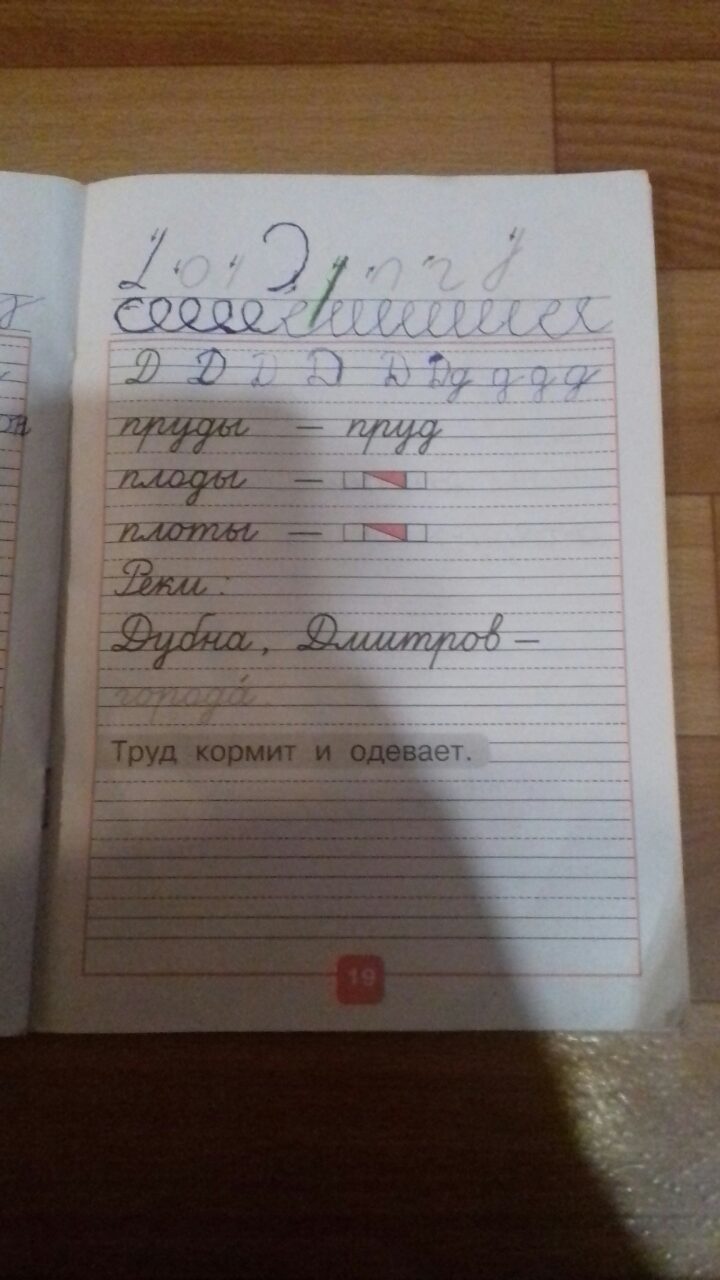 Д Д Д Д Д Дд д д д
пруды — пруд
плоды —
плоты —
Реки:
Дубна, Дмитров —
города́.
Труд кормит и одевает.
19